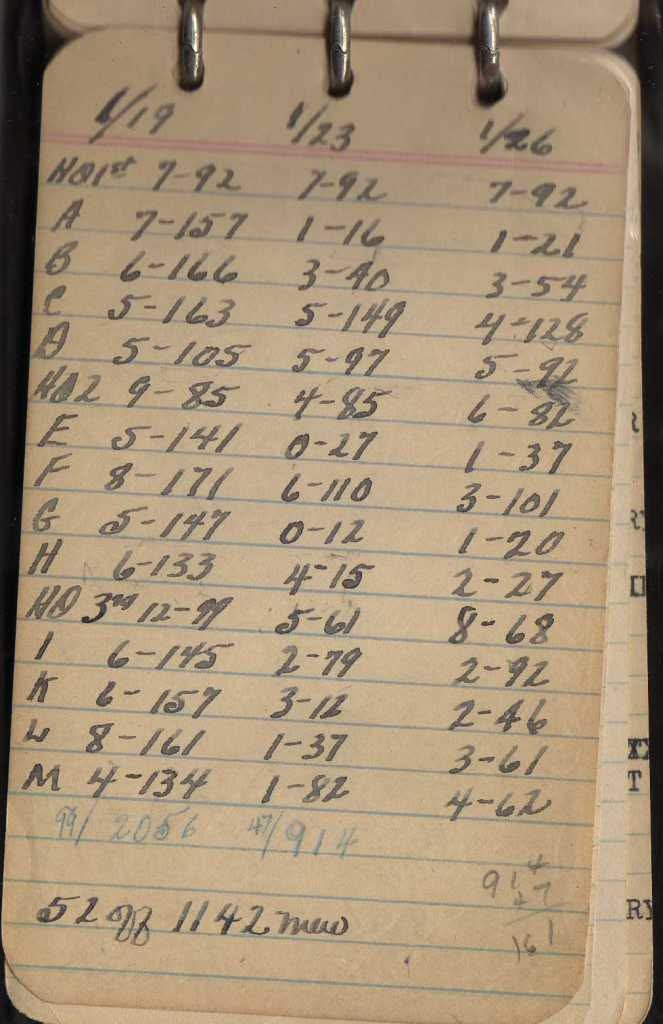 1/19 1/23 1/26
HQ1st 7-92 7-92 7-92
A 7-157 1-16 1-21
B 6-166 3-40 3-54
C 5-163 5-149 4-128
D 5-105 5-97 5-92
HQ2 9-85 4-85 6-82
E 5-141 0-27 1-37
F 8-171 6-110 3-101
G 5-147 0-12 1-20
H 6-133 4-15 2-27
HQ 3rd 12-99 5-61 8-68
I 6-145 2-79 2-92
K 6-157 3-12 2-46
L 8-161 1-37 3-61
M 4-134 1-82 4-62
99/ 2056 47/914
914
47
161
52 off 1142 men
RY
T
RY